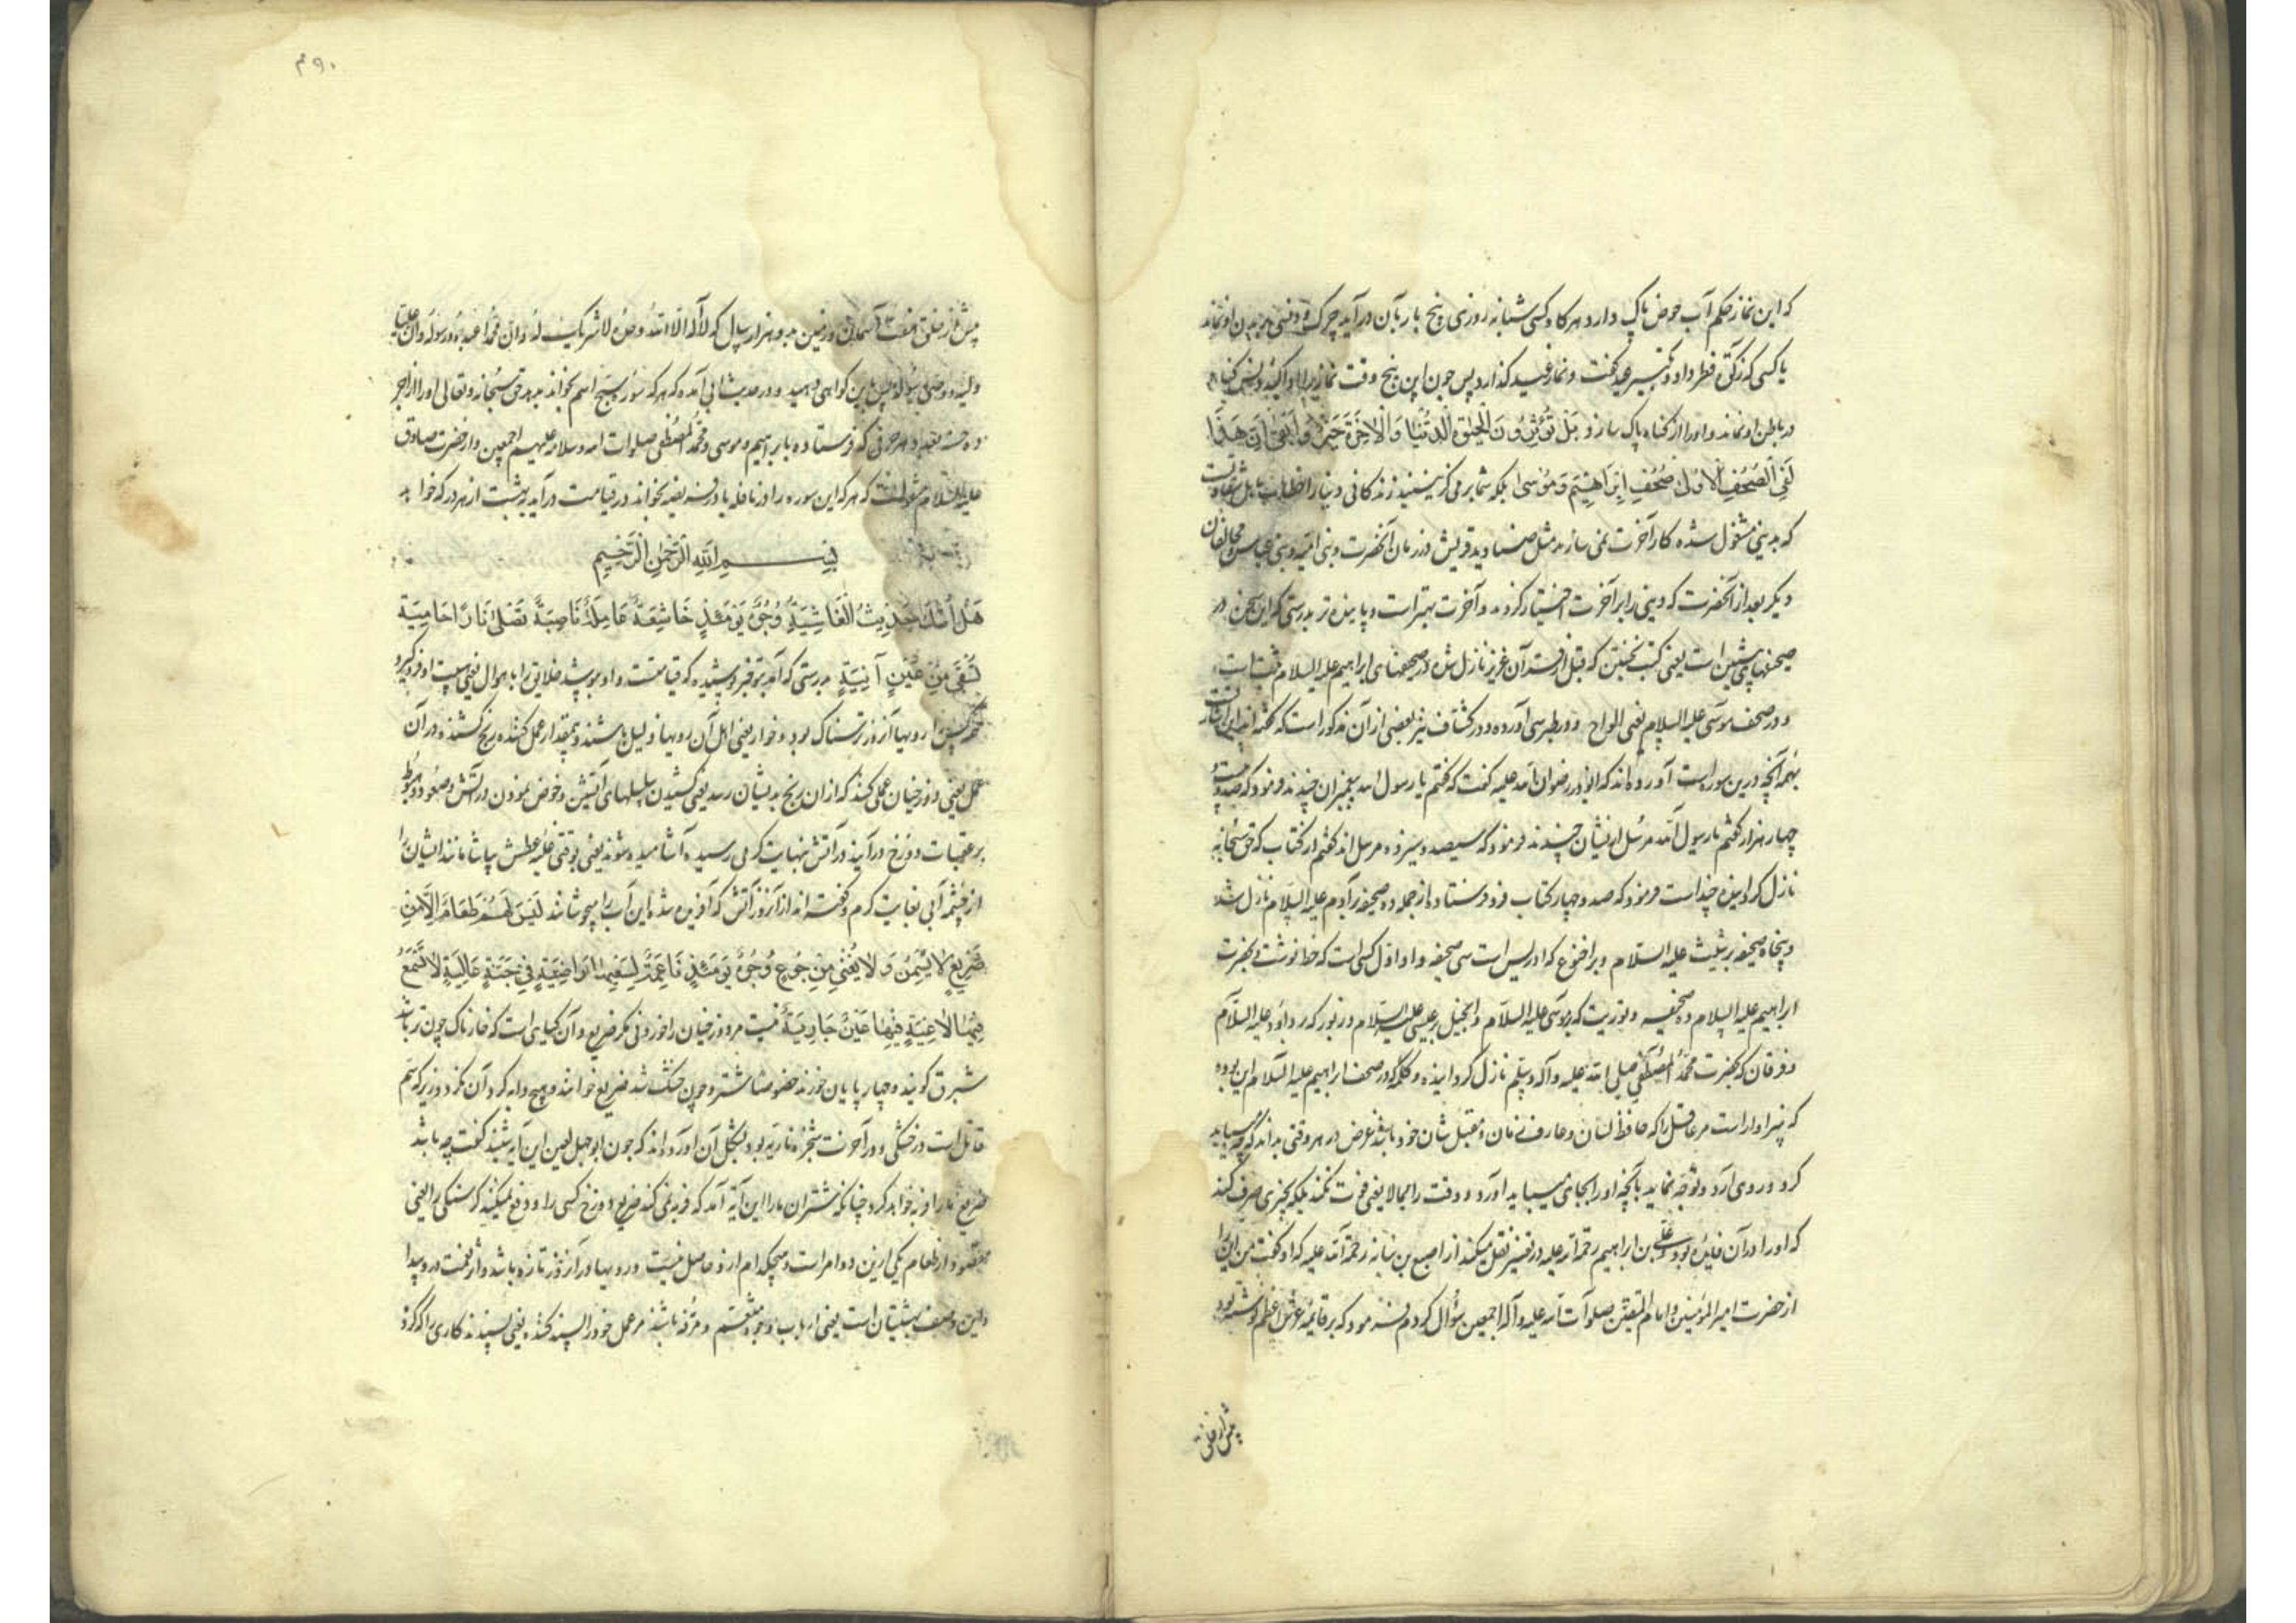 که این نماز حکم آب حوض پاک دارد هر کاه کسی شبانه روزی پنج بار بآن در آید چرک و وسخی بر بدن او نماند
یا کسی که زکوة فطر داد و تکبیر عید گفت و نماز عید گذارد پس چون این پنج وقت نماز را ادا کند دنس گناه
در باطن او نماند و او را از گناه پاک سازد بَلْ تُؤْثِرُونَ الْحَیٰوةَ الدُّنْیَا وَالْاٰخِرَةُ خَیْرٌ وَاَبْقٰی اِنَّ هٰذَا
لَفِی الصُّحُفِ الْاُولٰی صُحُفِ اِبْرٰاهِیمَ وَمُوسٰی بلکه شما بر می گزینید زندکانی دنیا را خطاب با اهل شقاوتست
که بدنیی مشغول شده کار آخرت نمی سازند مثل صنادید قریش در زمان آنحضرت و بنی امیه و بنی عباس و مخالفان
دیگر بعد از آنحضرت که دینی را بر آخرت اختیار کردند و آخرت بهتر است و پاینده تر بدرستی که این سخن در
صحفهای پیشین است یعنی کتب نخستین که قبل از قرآن عزیز نازل شده در صحفهای ابراهیم علیه السلام ثبت است
و در صحف موسی علیه السلام یعنی الواح و در طبرسی آورده و در کشاف نیز بعضی از آن مذکور است که گفته اند این اشارتست
بهمه آنچه درین سوره است آورده اند که ابوذر رضوان الله علیه گفت که گفتم یا رسول الله پیغمبران چندند فرمود که صد و بیست
چهار هزار گفتم یا رسول الله مرسل از ایشان چندند فرمود که سیصد و سیزده مرسل اند گفتم از کتاب که حق سبحانه
نازل کردانیده چند است فرمود که صد و چهار کتاب فرو فرستاد از جمله ده صحیفه بر آدم علیه السلام نازل شد
و پنجاه صحیفه بر شیث علیه السلام و بر اخنوخ که ادریس است سی صحیفه و او اول کسی است که خط نوشت و بحضرت
ابراهیم علیه السلام ده صحیفه و توریت که بر موسی علیه السلام و انجیل بر عیسی علیه السلام و زبور که بر داود علیه السلام
و فرقان که بحضرت محمد المصطفی صلی الله علیه وآله وسلم نازل کردانیده و کلمه که در صحف ابراهیم علیه السلام این بوده
که سزاوار است مر عاقل را که حافظ لسان و عارف زمان و مقبل شان خود باشد غرض در هر وقتی بداند که چه میباید
کرد و روی آرد و توجه نماید بآنچه او را بجای میباید آورد و وقت را مجالا یعنی فوت نکند بلکه بچیزی صرف کند
که او را در آن فایده بود و علی بن ابراهیم رحمة الله علیه در تفسیر نقل میکند از اصبغ بن نباته رحمة الله علیه که او گفت من این را
از حضرت امیر المؤمنین و امام المتقین صلوات الله علیه وآله اجمعین سؤال کردم فرمود که بر قایمه عرش اعظم نوشته بود
پیش از خلق
۴۹۰
پیش از خلق هفت آسمان و زمین بدو هزار سال که لا اله الا الله وحده لا شریک له وان محمدا عبده ورسوله وان علیا
ولیه و وصی رسوله پس بدین کواهی دهید و در حدیث ابی آمده که هر که سوره سبح اسم بخواند بدهد حق سبحانه وتعالی او را از اجر
ده حسنه بعدد هر حرفی که فرستاده بابراهیم و موسی و محمد المصطفی صلوات الله وسلامه علیهم اجمعین و از حضرت صادق
علیه السلام منقولست که هر که این سوره را در نافله یا در فریضه بخواند در قیامت در آید ببهشت از هر در که خواهد
بِسْمِ اللّٰهِ الرَّحْمٰنِ الرَّحِیمِ
هَلْ اَتٰیكَ حَدِیثُ الْغَاشِیَةِ وُجُوهٌ یَوْمَئِذٍ خَاشِعَةٌ عَامِلَةٌ نَاصِبَةٌ تَصْلٰی نَارًا حَامِیَةً
تُسْقٰی مِنْ عَیْنٍ اٰنِیَةٍ بدرستی که آمد بتو خبر پوشنده که قیامتست و او بپوشد خلایق را باهوال یعنی هیبت او فرو گیرد
همه را رویها آنروز ترسناک بود و خوار یعنی اهل آن رویها ذلیل باشند و بیمقدار عمل کننده رنج کشنده در آن
عمل یعنی دوزخیان عملی کنند که از آن رنج بدیشان رسد یعنی کشیدن سلسلهای آتشین و خوض نمودن در آتش و صعود و هبوط
بر عقبات دوزخ در آیند در آتش بنهایت گرمی رسیده آشامیده شوند یعنی بوقتی غلبه عطش بیاشامانند ایشان را
از چشمه آبی بغایت کرم و گفته اند از آنروز آتش که آفریده شد این آب را میجوشانند لَیْسَ لَهُمْ طَعَامٌ اِلَّا مِنْ
ضَرِیعٍ لَا یُسْمِنُ وَلَا یُغْنِی مِنْ جُوعٍ وُجُوهٌ یَوْمَئِذٍ نَاعِمَةٌ لِسَعْیِهَا رَاضِیَةٌ فِی جَنَّةٍ عَالِیَةٍ لَا تَسْمَعُ
فِیهَا لَاغِیَةً فِیهَا عَیْنٌ جَارِیَةٌ نیست مر دوزخیان را خوردنی مگر ضریع و آن کیاهی است که خارناک چون تر باشد
شبرق گویند و چهار پایان خورند خصوصا شتر و چون خشک شد ضریع خوانند و هیچ دابه کرد آن نکردد زیرا که سم
قاتل است در خشکی و در آخرت شجره ناریه بود بشکل آن آورده اند که چون ابو جهل لعین این آیه شنید گفت چه باشد
ضریع ما را فربه خواهد کرد چنانکه شتران ما را این آیه آمد که فربه نمی کند ضریع دوزخ کسی را و دفع نمیکند کرسنگی را یعنی
مقصود از طعام یکی ازین دو امر است و هیچکدام ازو حاصل نیست و رویها در آنروز تازه باشد و اثر نعمت در و پیدا
و این وصف بهشتیان است یعنی ارباب وجوه متنعم و مرفه باشند مر عمل خود را پسند کننده یعنی پسندند کاری را که کرد